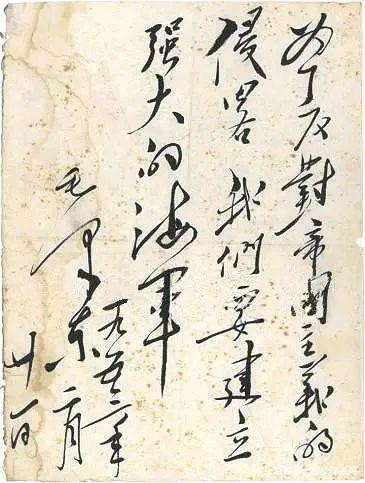 为了反對帝國主義的
侵略 我們要建立
强大的海軍
毛泽东
一九五三年二月
廿一日